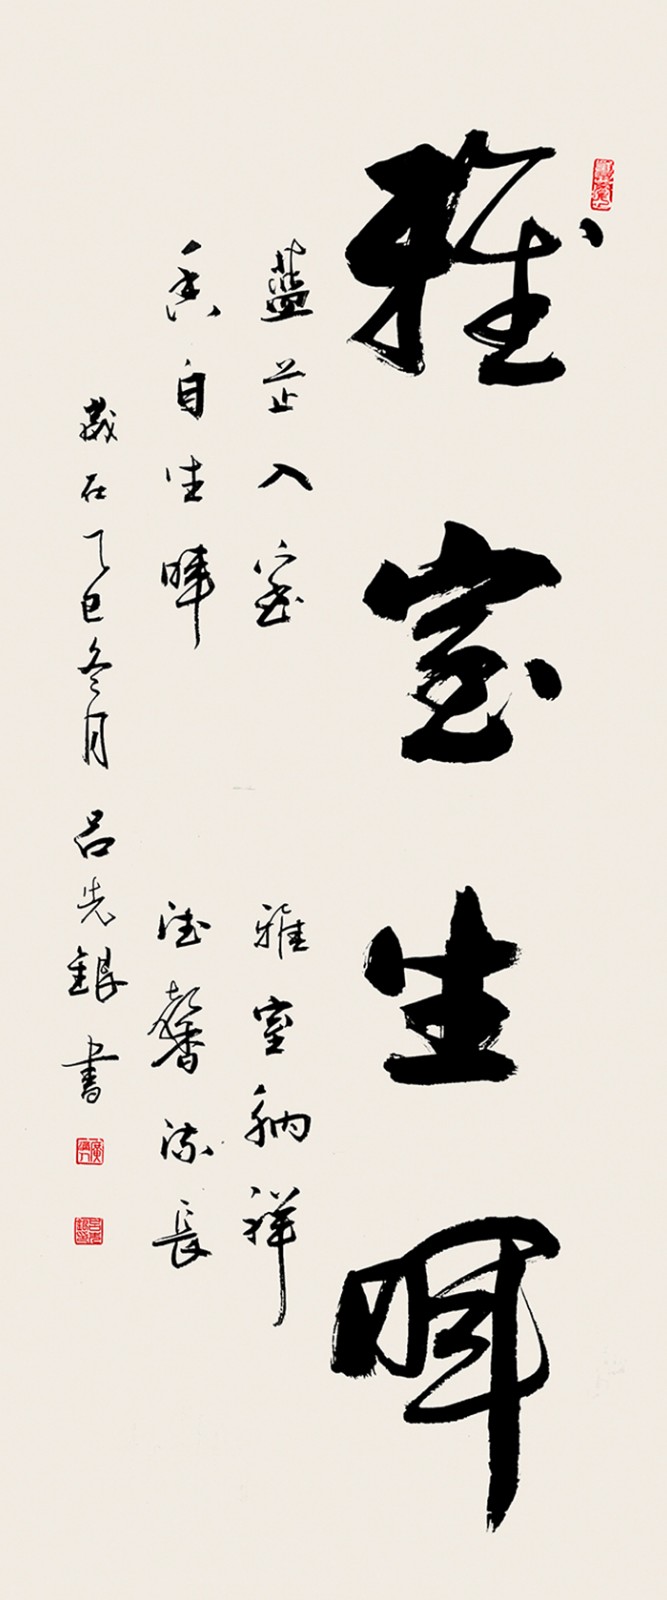 雅室生暉
藍芷入室
香自生暉
雅室納祥
德馨流長
歲在乙巳冬月 呂先銀書